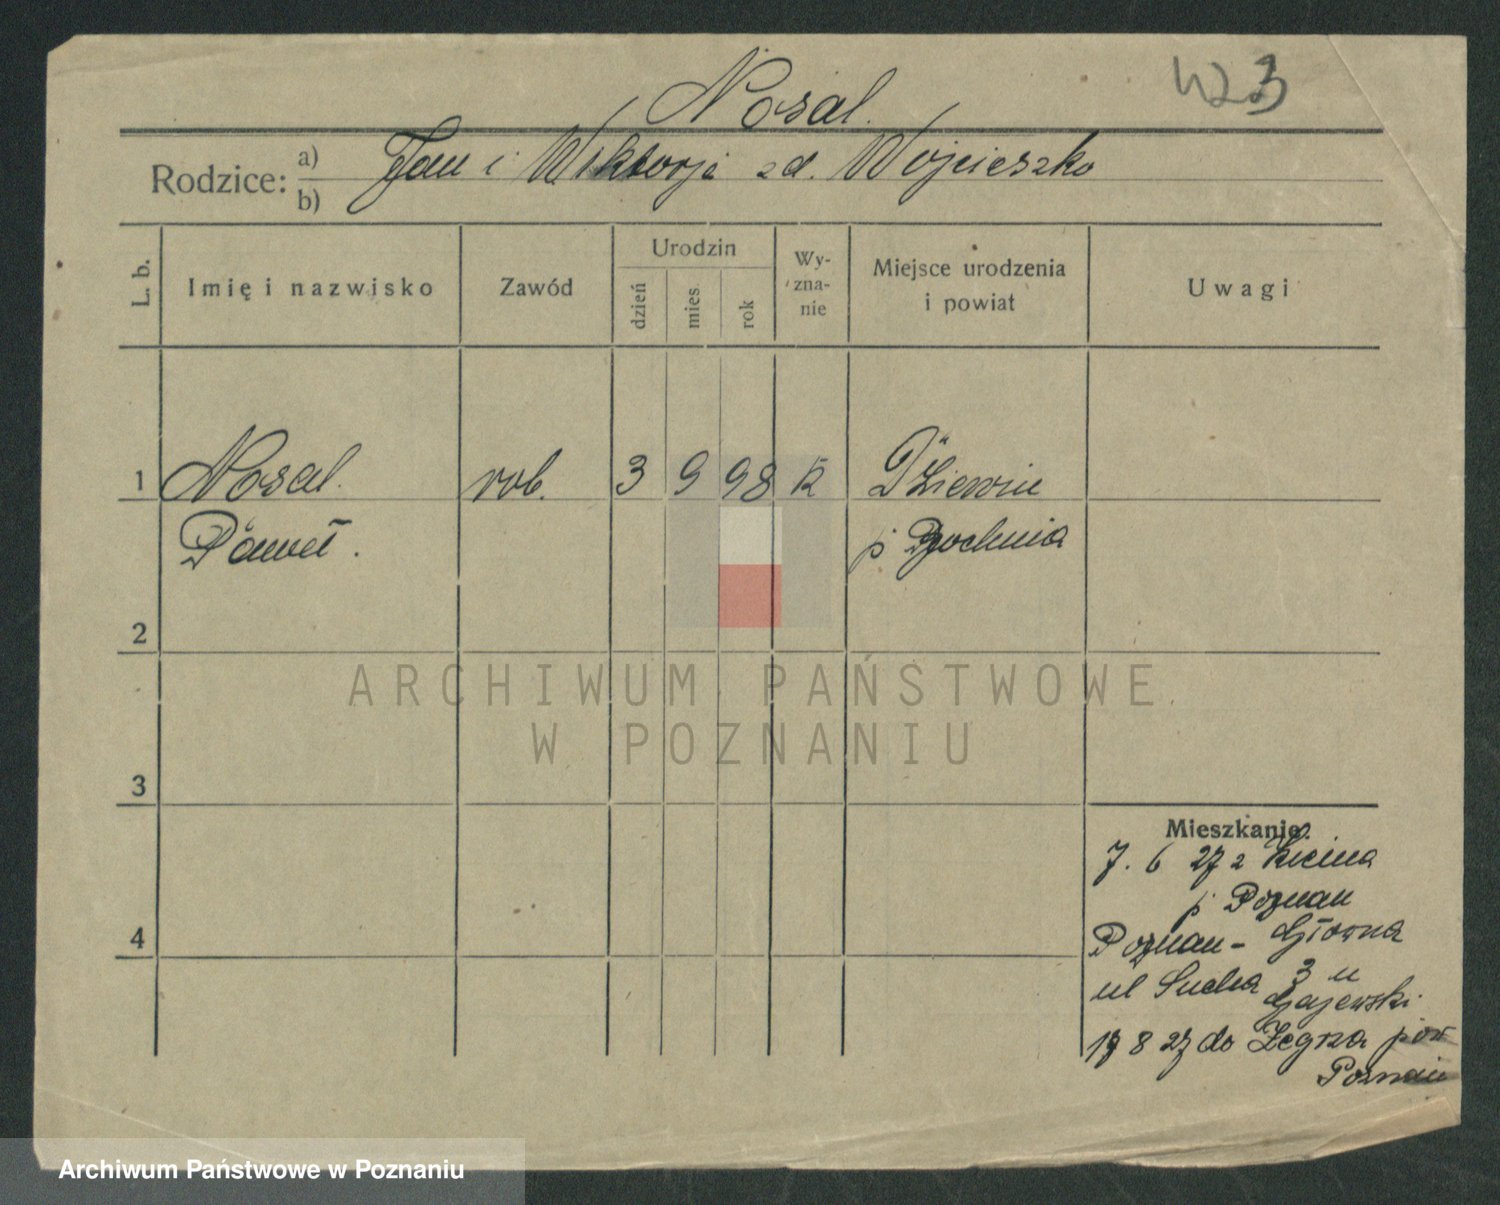 Nosal.
423
Rodzice: a) Jan i Wiktorja zd. Wojcieszko
b)
L. b. Imię i nazwisko Zawód Urodzin dzień mies. rok Wy- zna- nie Miejsce urodzenia i powiat Uwagi
1 Nosal. rob. 3 9 98 k Dziewin
Paweł. p Bochnia
2
ARCHIWUM PAŃSTWOWE
W POZNANIU
3
Mieszkanie.
7. 6 27 z Kicina
p Poznan
4
Poznan- Główna
ul Sucha 3 u
Gajewski
17 8 27 do Żegrza pow
Poznan
Archiwum Państwowe w Poznaniu